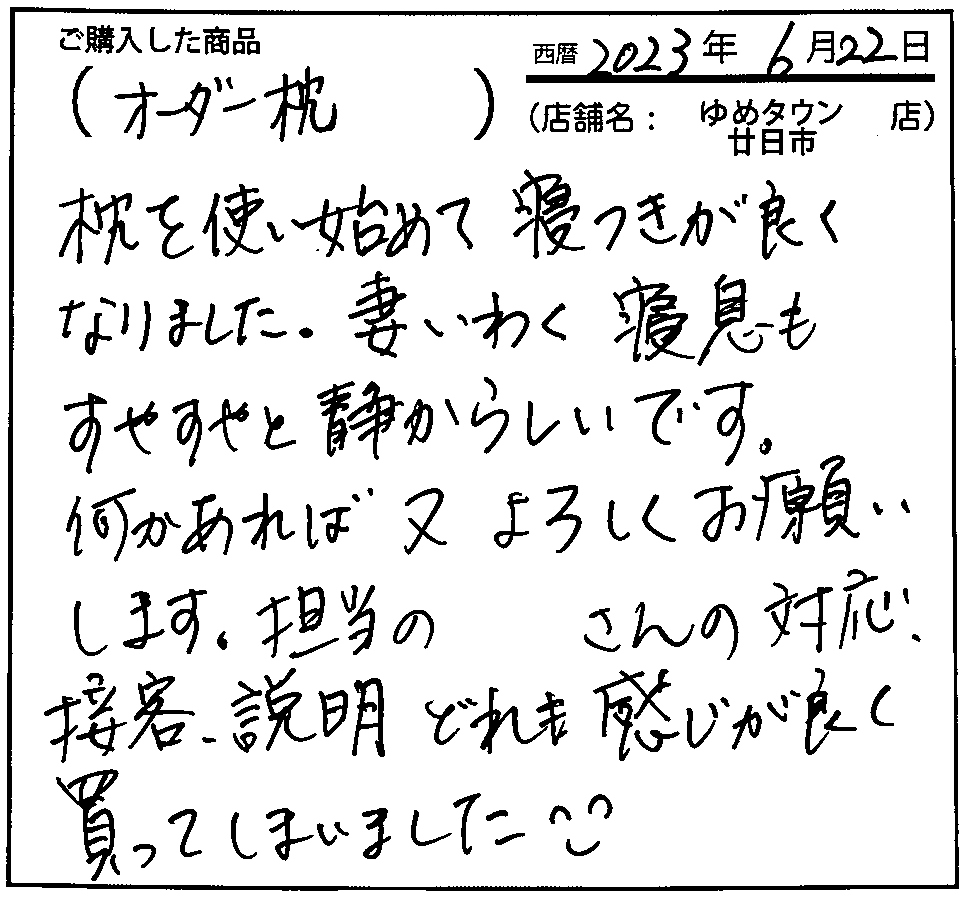 ご購入した商品
西暦 2023年 6月22日
(オーダー枕)
(店舗名: ゆめタウン 廿日市 店)
枕を使い始めて 寝つきが良く
なりました。妻いわく 寝息も
すやすやと静からしいです。
何かあれば 又 よろしくお願い
します。担当の さんの対応、
接客、説明 どれも感じが良く
買ってしまいました